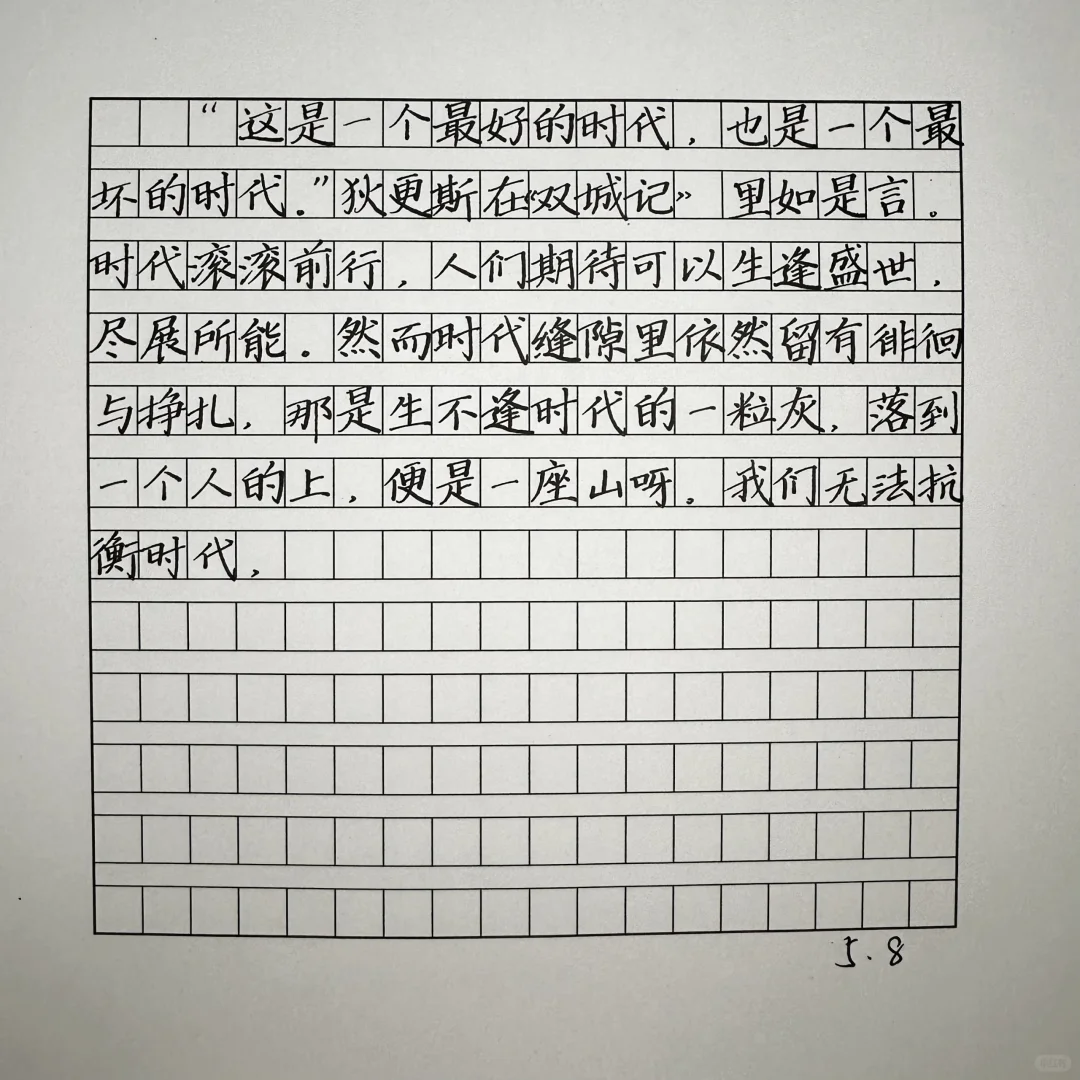 “这是一个最好的时代，也是一个最
坏的时代.”狄更斯在《双城记》里如是言。
时代滚滚前行，人们期待可以生逢盛世，
尽展所能.然而时代缝隙里依然留有徘徊
与挣扎,那是生不逢时代的一粒灰,落到
一个人的上,便是一座山呀。我们无法抗
衡时代,
5.8